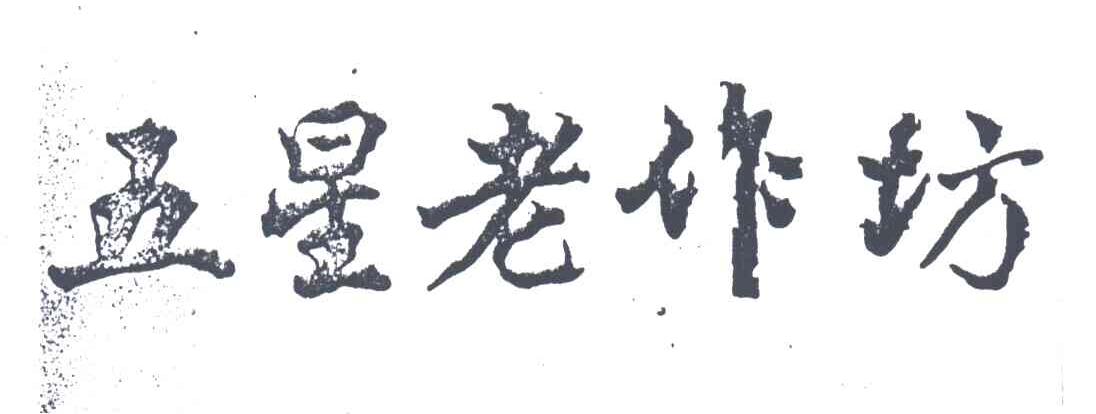 五星老作坊